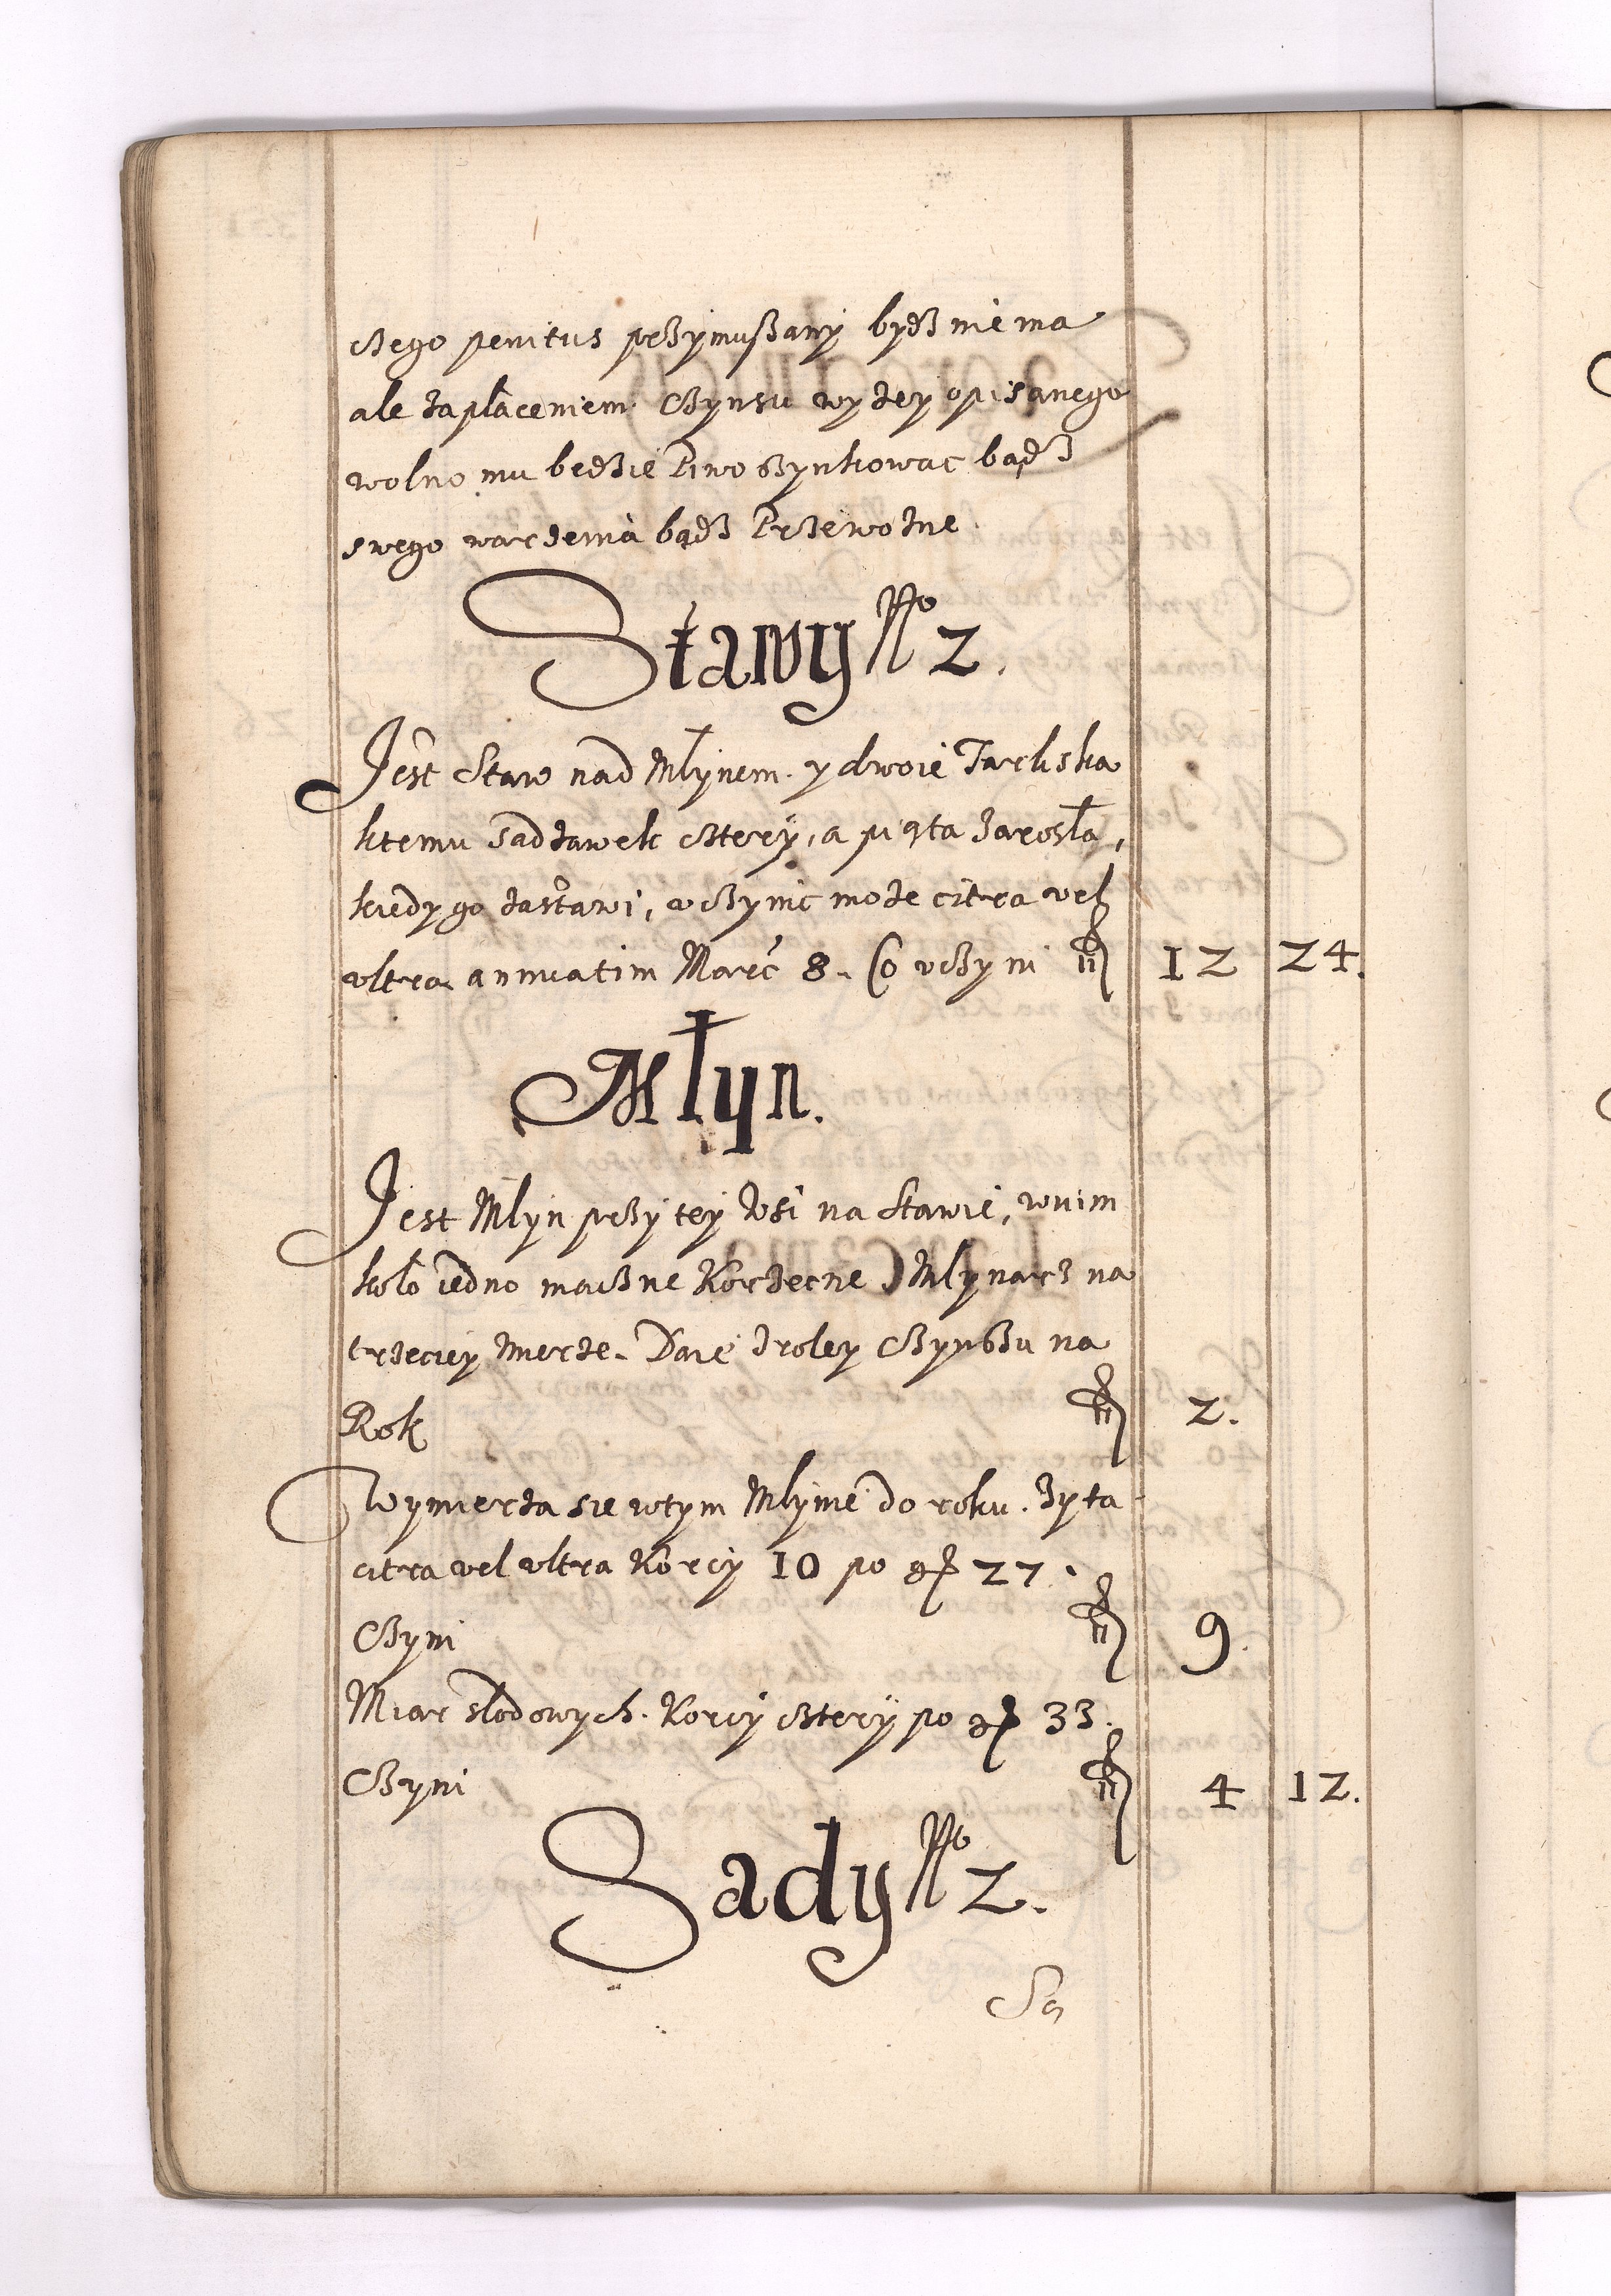 czego penitus przymuszany bydz niema
ale zapłaceniem Czynsu wyzey opisanego
wolno mu będzie Piwo szynkowac bądz
swego warzenia bądz Przewozne
Stawy No 2.
Jest Staw nad Młynem. y dwoie Tarliska
ktemu Sadzawek cztery, a piąta Zarosła,
kiedy go zastawi, uczynic może citra vel
ultra annuatim Marc 8. Co uczyni fl 12 24.
Młyn.
Jest Młyn przy tey Wsi na Stawie, wnim
koło iedno mączne Korzecne) Młynarz na
trzeciey mierze. Daie zroley Czynszu na
Rok fl 2.
Wymierza sie wtym Młynie do roku. Zyta
citra vel ultra Korcy 10 po gr 27.
Czyni fl 9.
Miar słodowych. Korcy cztery po gr 33.
Czyni fl 4 12.
Sady No 2.
Są